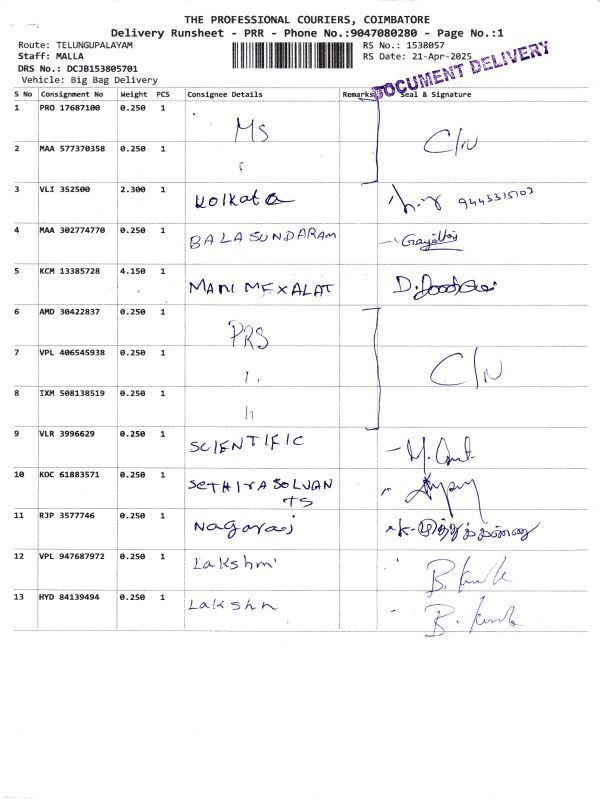 THE PROFESSIONAL COURIERS, COIMBATORE
Delivery Runsheet - PRR - Phone No.:9047080280 - Page No.:1
Route: TELUNGUPALAYAM RS No.: 1538057
Staff: MALLA RS Date: 21-Apr-2025
DRS No.: DCJB153805701
Vehicle: Big Bag Delivery
DOCUMENT DELIVERY
S No Consignment No Weight PCS Consignee Details Remarks Seal & Signature
1 PRO 17687100 0.250 1 MS C/N
2 MAA 577370358 0.250 1
3 VLI 352500 2.300 1 Kolkata 9443315103
4 MAA 302774770 0.250 1 BALASUNDARAM Gayathri
5 KCM 13385728 4.150 1 MANI MEXALAT
6 AMD 30422837 0.250 1 PRS
7 VPL 406545938 0.250 1 C/N
8 IXM 508138519 0.250 1
9 VLR 3996629 0.250 1 SCIENTIFIC
10 KOC 61883571 0.250 1 SETHIYASOLUAN
TS
11 RJP 3577746 0.250 1 Nagaraj
12 VPL 947687972 0.250 1 Lakshmi
13 HYD 84139494 0.250 1 Lakshn